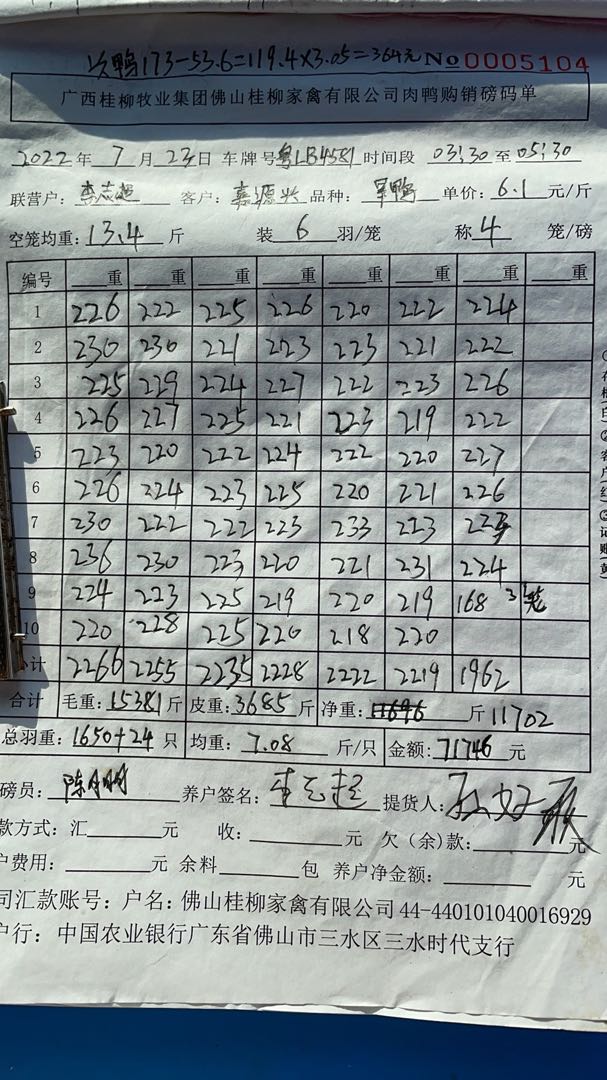 次鸭173-53.6=119.4×3.05=364元 No 0005104
广西桂柳牧业集团佛山桂柳家禽有限公司肉鸭购销磅码单
2022年 7 月 23 日 车牌号 粤LB4581 时间段 03:30 至 05:30
联营户: 李志超 客户: 嘉源兴 品种: 鸭 单价: 6.1 元/斤
空笼均重: 13.4 斤 装 6 羽/笼 称 4 笼/磅
编号 重 重 重 重 重 重 重 重
1 226 222 225 226 220 222 224
2 230 230 221 223 223 221 222
3 225 229 224 227 222 223 226
4 226 227 225 221 223 219 222
5 223 220 222 224 222 220 227
6 226 224 223 225 220 221 226
7 230 222 222 223 233 223
8 236 230 223 220 221 231 224
9 224 223 225 219 220 219 168 3笼
10 220 228 225 220 218 220
计 2266 2255 2235 2228 2222 2219 1962
合计 毛重: 15381 斤 皮重: 3685 斤 净重: 11696 斤 11702
总羽重: 1650+24 只 均重: 7.08 斤/只 金额: 71746 元
磅员: 陈 养户签名: 李志超 提货人:
款方式: 汇 元 收: 元 欠(余)款: 元
户费用: 元 余料 包 养户净金额: 元
司汇款账号: 户名: 佛山桂柳家禽有限公司 44-440101040016929
户行: 中国农业银行广东省佛山市三水区三水时代支行
②客户(红)
③记账(黄)